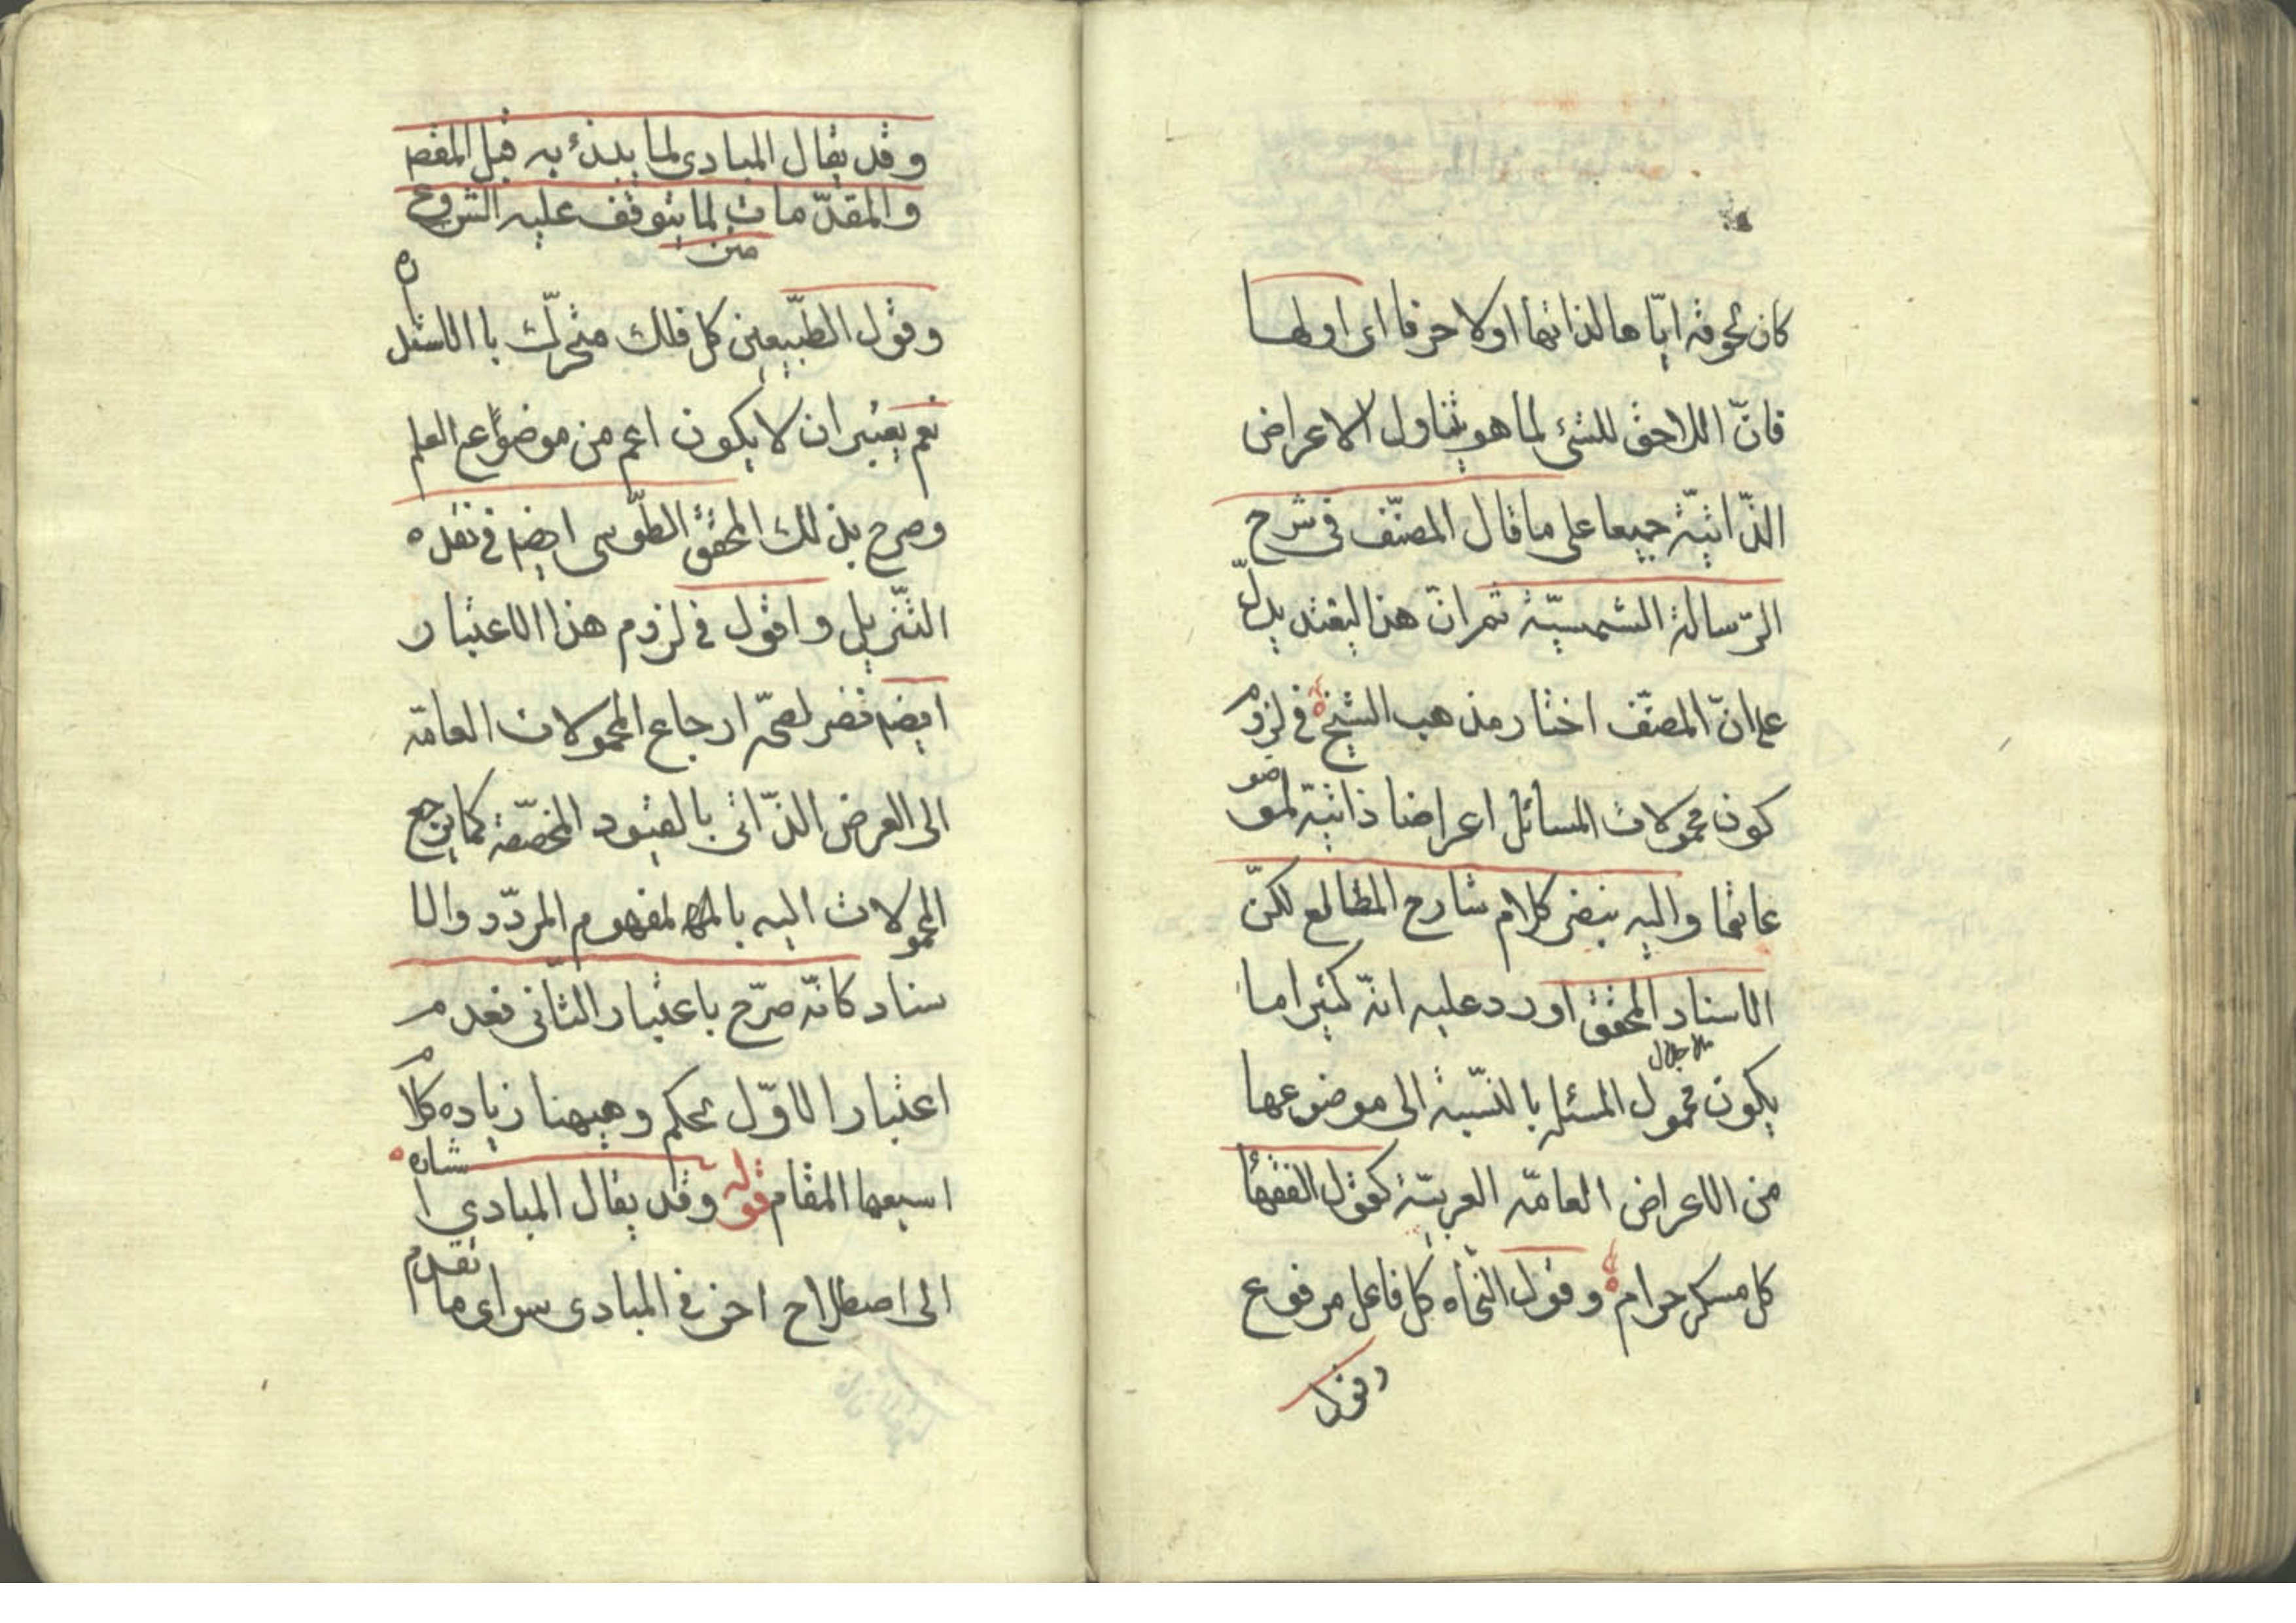 كان لحوقه ايّاها لذاتها اولا حرفا اى اولها
فانّ اللاحق للشئ لما هو يتناول الاعراض
الذّاتيّة جميعا على ما قال المصنّف فى شرح
الرّسالة الشمسيّة ثم انّ هذا ليقتد يدلّ
على انّ المصنّف اختار مذهب الشيخ فى لزوم
كون محمولات المسائل اعراضا ذاتيّة لموضو
عاتها واليه ينضر كلام شارح المطالع لكنّ
الاستاد المحقق اورد عليه انّه كثيرا ما
ملا جلال
يكون محمول المسئله بالنّسبة الى موضوعها
من الاعراض العامّه الغريبّة كقول الفقهاء
كل مسكر حرام وقول النّحاه كل فاعل مرفوع
وقول
وقد يقال المبادى لما يبدء به قبل المقصد
والمقدّمات لما يتوقف عليه الشروع
متن
وقول الطّبيعين كل فلك متحرّك با الاستداره
نعم يعتبر ان لا يكون اعم من موضوع العلم
وصرح بذلك المحقق الطّوسى ايضا فى نقده
التّنزيل واقول فى لزوم هذا الاعتبار
ايضا قضر لصحّه ارجاع المحمولات العامّه
الى العرض الذّاتى بالقيود المخصّصة كما يرجع
المحمولات اليه بالمفهوم المردّد والا
ستاد كانّه صرّح باعتبار الثّانى فعدم
اعتبار الاوّل تحكم وهيهنا زياده كلام
اسبعها المقام قوله وقد يقال المبادى اشاره
الى اصطلاح اخر فى المبادى سواى ما تقدم